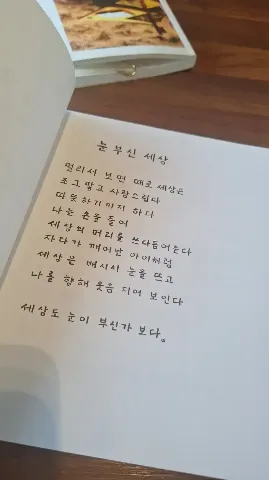 눈부신 세상
멀리서 보면 때로 세상은
조그맣고 사랑스럽다
따뜻하기까지 하다
나는 손을 들어
세상의 머리를 쓰다듬어준다
자다가 깨어난 아이처럼
세상은 배시시 눈을 뜨고
나를 향해 웃음 지어 보인다
세상도 눈이 부신가 보다.